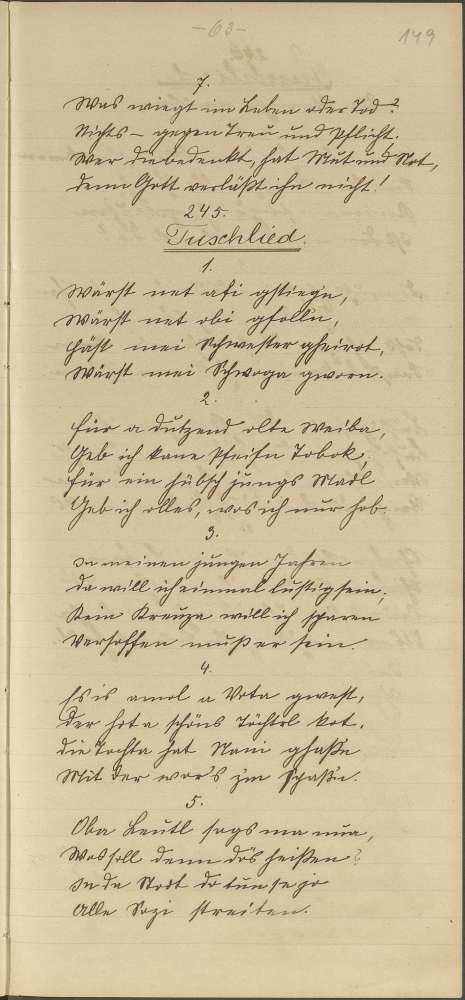 -63-
149
7.
Was wiegt im Leben oder Tod?
Nichts – gegen Treu und Pflicht.
Wer die bedenkt, hat Mut und Not,
denn Gott verläßt ihn nicht!
245.
Tuschlied.
1.
Wärst net afi gstiegn,
Wärst net obi gfolln,
Häst mei Schwester gheirot,
Wärst mei Schwoga gworn.
2.
Für a dutzend olte Weiba,
Geb ich kane Pfeifn Tobok,
Für ein hübsch jungs Madl
Geb ich olles, wos ich nur hob.
3.
In meinen jungen Jahren
Da will ich einmal lustig sein,
Kein Kreuza will ich sparen
Versoffen muß er sein.
4.
Es is amol a Vota gwest,
Der hot a schöns Töchtrl kot.
Die Tochta hat Nani ghaßn
Mit der wor's zu spaßn.
5.
Oba Leutl sogs ma nua,
Wos soll denn dös heißen?
In da Stodt do tun se jo
Alle Sozi streiten.